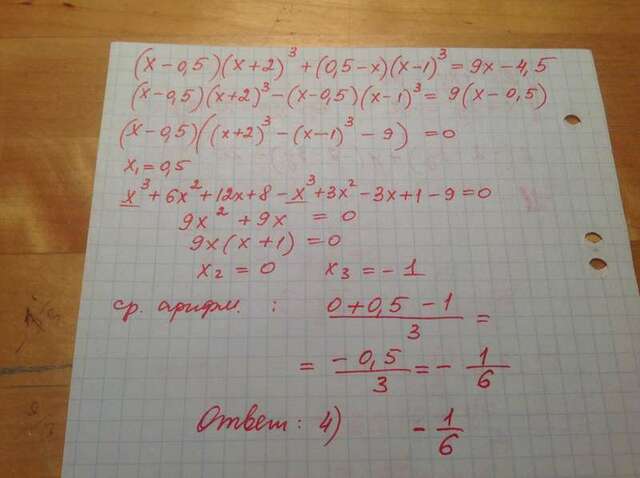 (x-0,5)(x+2)³+(0,5-x)(x-1)³=9x-4,5
(x-0,5)(x+2)³-(x-0,5)(x-1)³=9(x-0,5)
(x-0,5)((x+2)³-(x-1)³-9)=0
x₁=0,5
x³+6x²+12x+8-x³+3x²-3x+1-9=0
9x²+9x=0
9x(x+1)=0
x₂=0 x₃=-1
ср. арифм.: (0+0,5-1)/3=
=-0,5/3=-1/6
Ответ: 4) -1/6